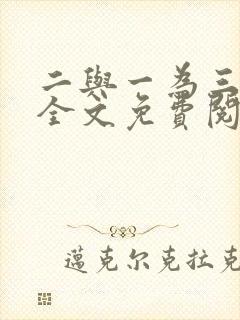 二與一為三
全文免費閱
邁克尔克拉克